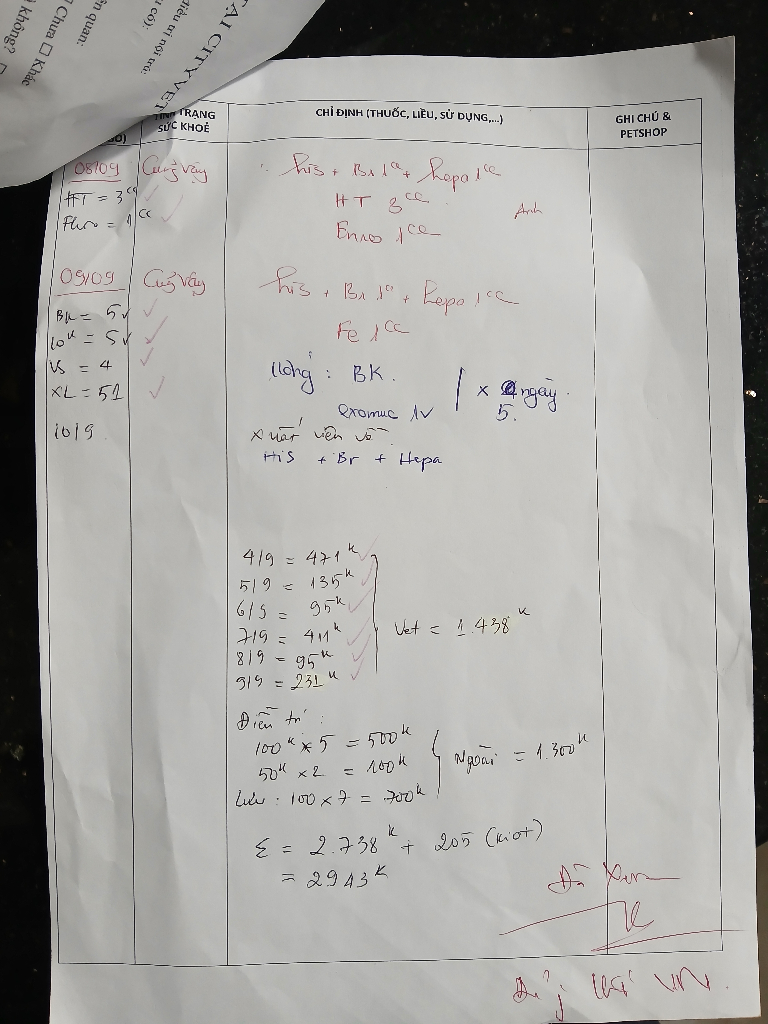 TẠI CITYVET
điều trị nội trú:
có):
ên quan:
Chưa □ Khác
không?
TÌNH TRẠNG SỨC KHOẺ
CHỈ ĐỊNH (THUỐC, LIỀU, SỬ DỤNG,...)
GHI CHÚ & PETSHOP
08/09
HT = 3cc
= 1cc
his + Br 1cc + hepa 1cc
HT 3cc
Anh
Enro 1cc
09/09
BK = 5v
10K = 5v
VS = 4
XL = 51
his + Br 1cc + hepa 1cc
Fe 1cc
Uống : BK.
exomuc 1v
x ngày.
5.
10/9
Xuất viện về
His + Br + Hepa
4/9 = 471K
5/9 = 135K
6/9 = 95K
7/9 = 411K
8/9 = 95K
9/9 = 231K
Vet = 1.438K
Điều trị :
100K x 5 = 500K
50K x 2 = 100K
Lưu : 100 x 7 = 700K
Ngoài = 1.300K
Σ = 2.738K + 205 (Kiot)
= 2943K
Đã